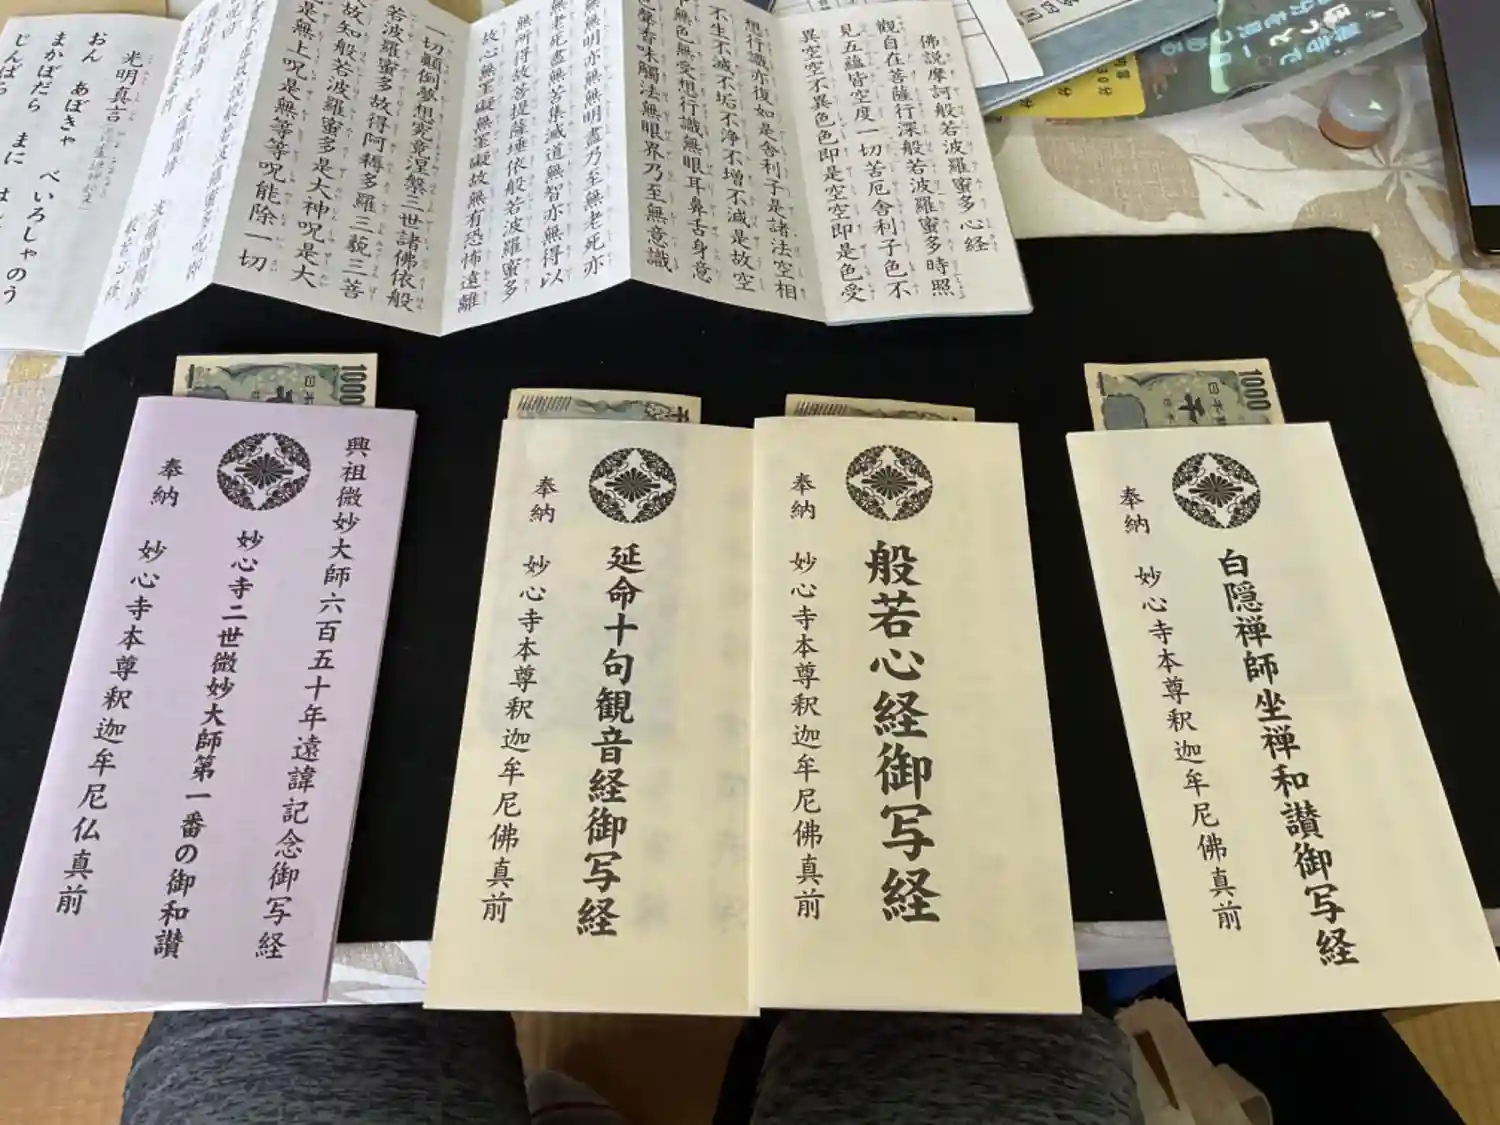 佛説摩訶般若波羅蜜多心経
觀自在菩薩行深般若波羅蜜多時照
見五蘊皆空度一切苦厄舎利子色不
異空空不異色色即是空空即是色受
想行識亦復如是舎利子是諸法空相
不生不滅不垢不浄不増不滅是故空
中無色無受想行識無眼耳鼻舌身意
色聲香味觸法無眼界乃至無意識
無無明亦無無明盡乃至無老死亦
無老死盡無苦集滅道無智亦無得以
無所得故菩提薩埵依般若波羅蜜多
故心無罣礙無罣礙故無有恐怖遠離
一切顛倒夢想究竟涅槃三世諸佛依般
若波羅蜜多故得阿耨多羅三藐三菩
故知般若波羅蜜多是大神呪是大
是無上呪是無等等呪能除一切
光明真言
おん あぼきゃ べいろしゃのう
まかぼだら まに は
じんばら
1000
興祖微妙大師六百五十年遠諱記念御写経
妙心寺二世微妙大師第一番の御和讃
奉納 妙心寺本尊釈迦牟尼仏真前
延命十句観音経御写経
奉納 妙心寺本尊釈迦牟尼佛真前
般若心経御写経
奉納 妙心寺本尊釈迦牟尼佛真前
1000
白隠禅師坐禅和讃御写経
奉納 妙心寺本尊釈迦牟尼佛真前